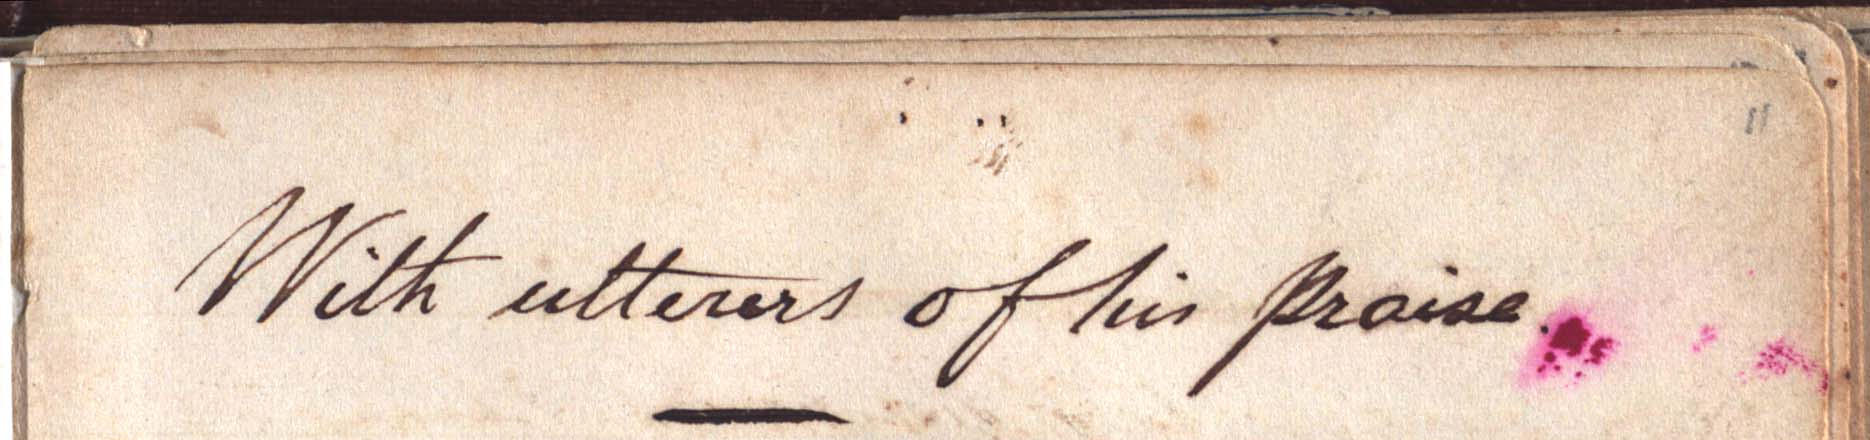 With utterers of his praise.